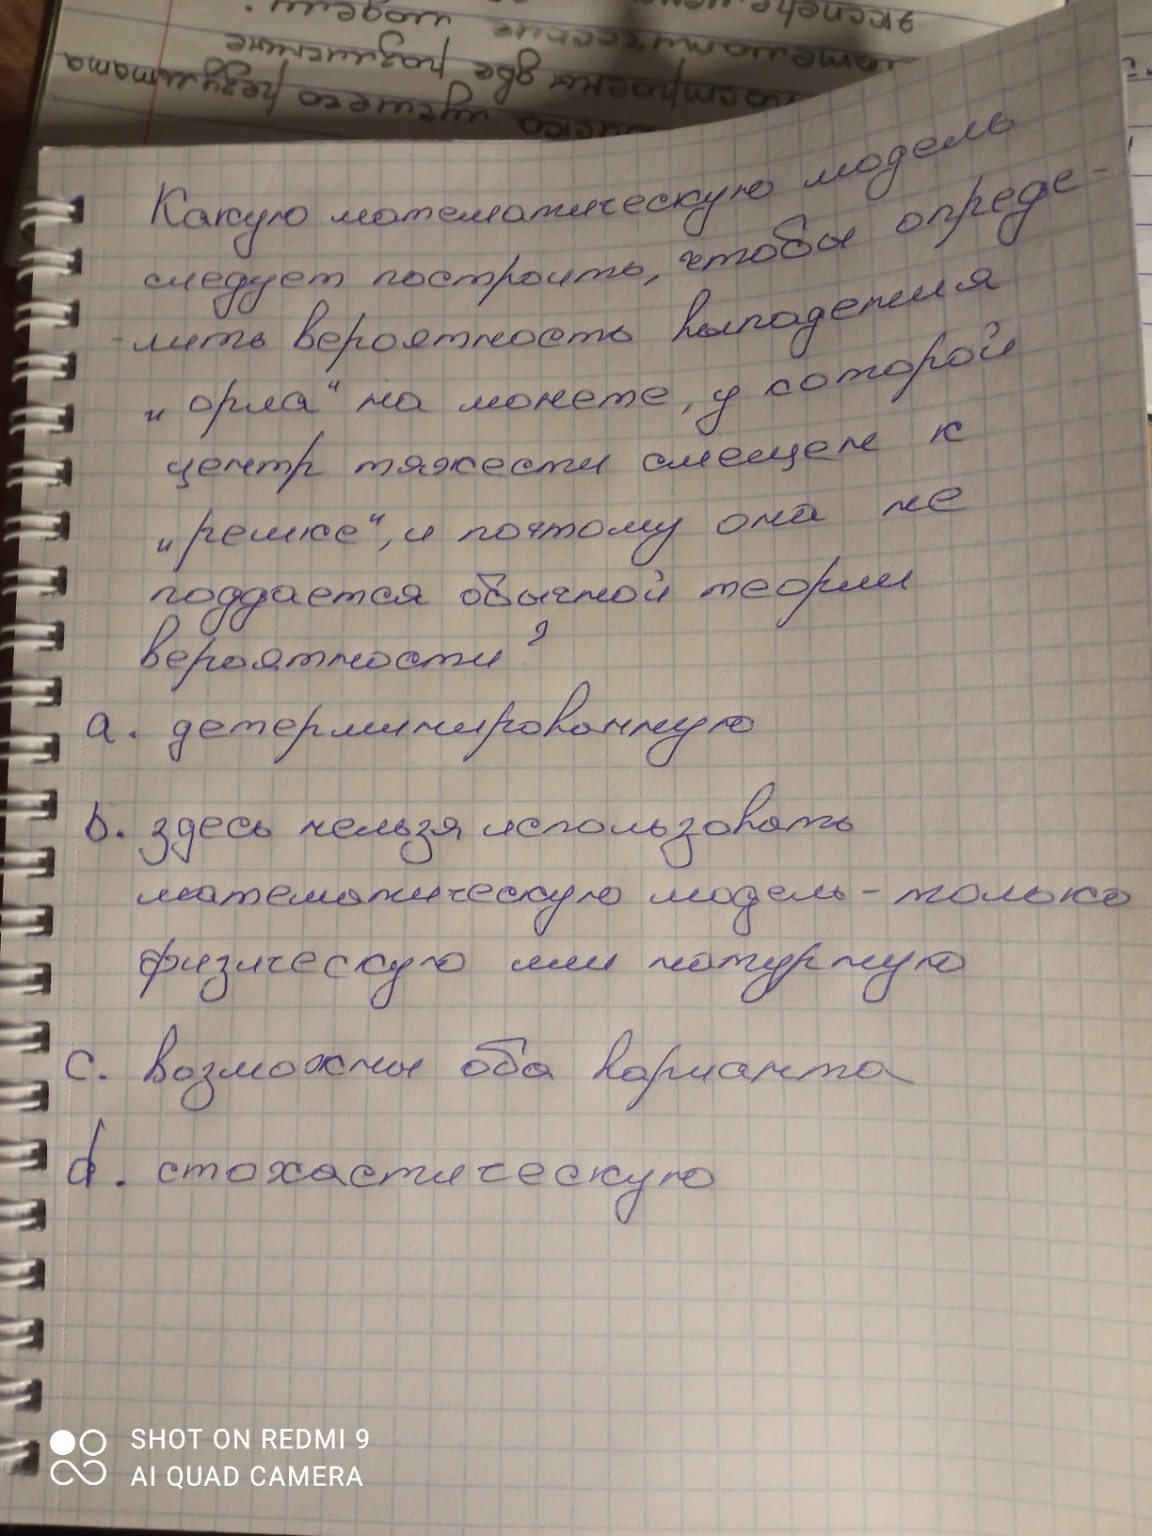 экспе
математические модели.
построены две различные
иска лучшего результата
Какую математическую модель
следует построить, чтобы опреде-
-лить вероятность выпадения
„орла“ на монете, у которой
центр тяжести смещен к
„решке“, и поэтому она не
поддается обычной теории
вероятности?
a. детерминированную
b. здесь нельзя использовать
математическую модель - только
физическую или натурную
c. возможны оба варианта
d. стохастическую
SHOT ON REDMI 9
AI QUAD CAMERA